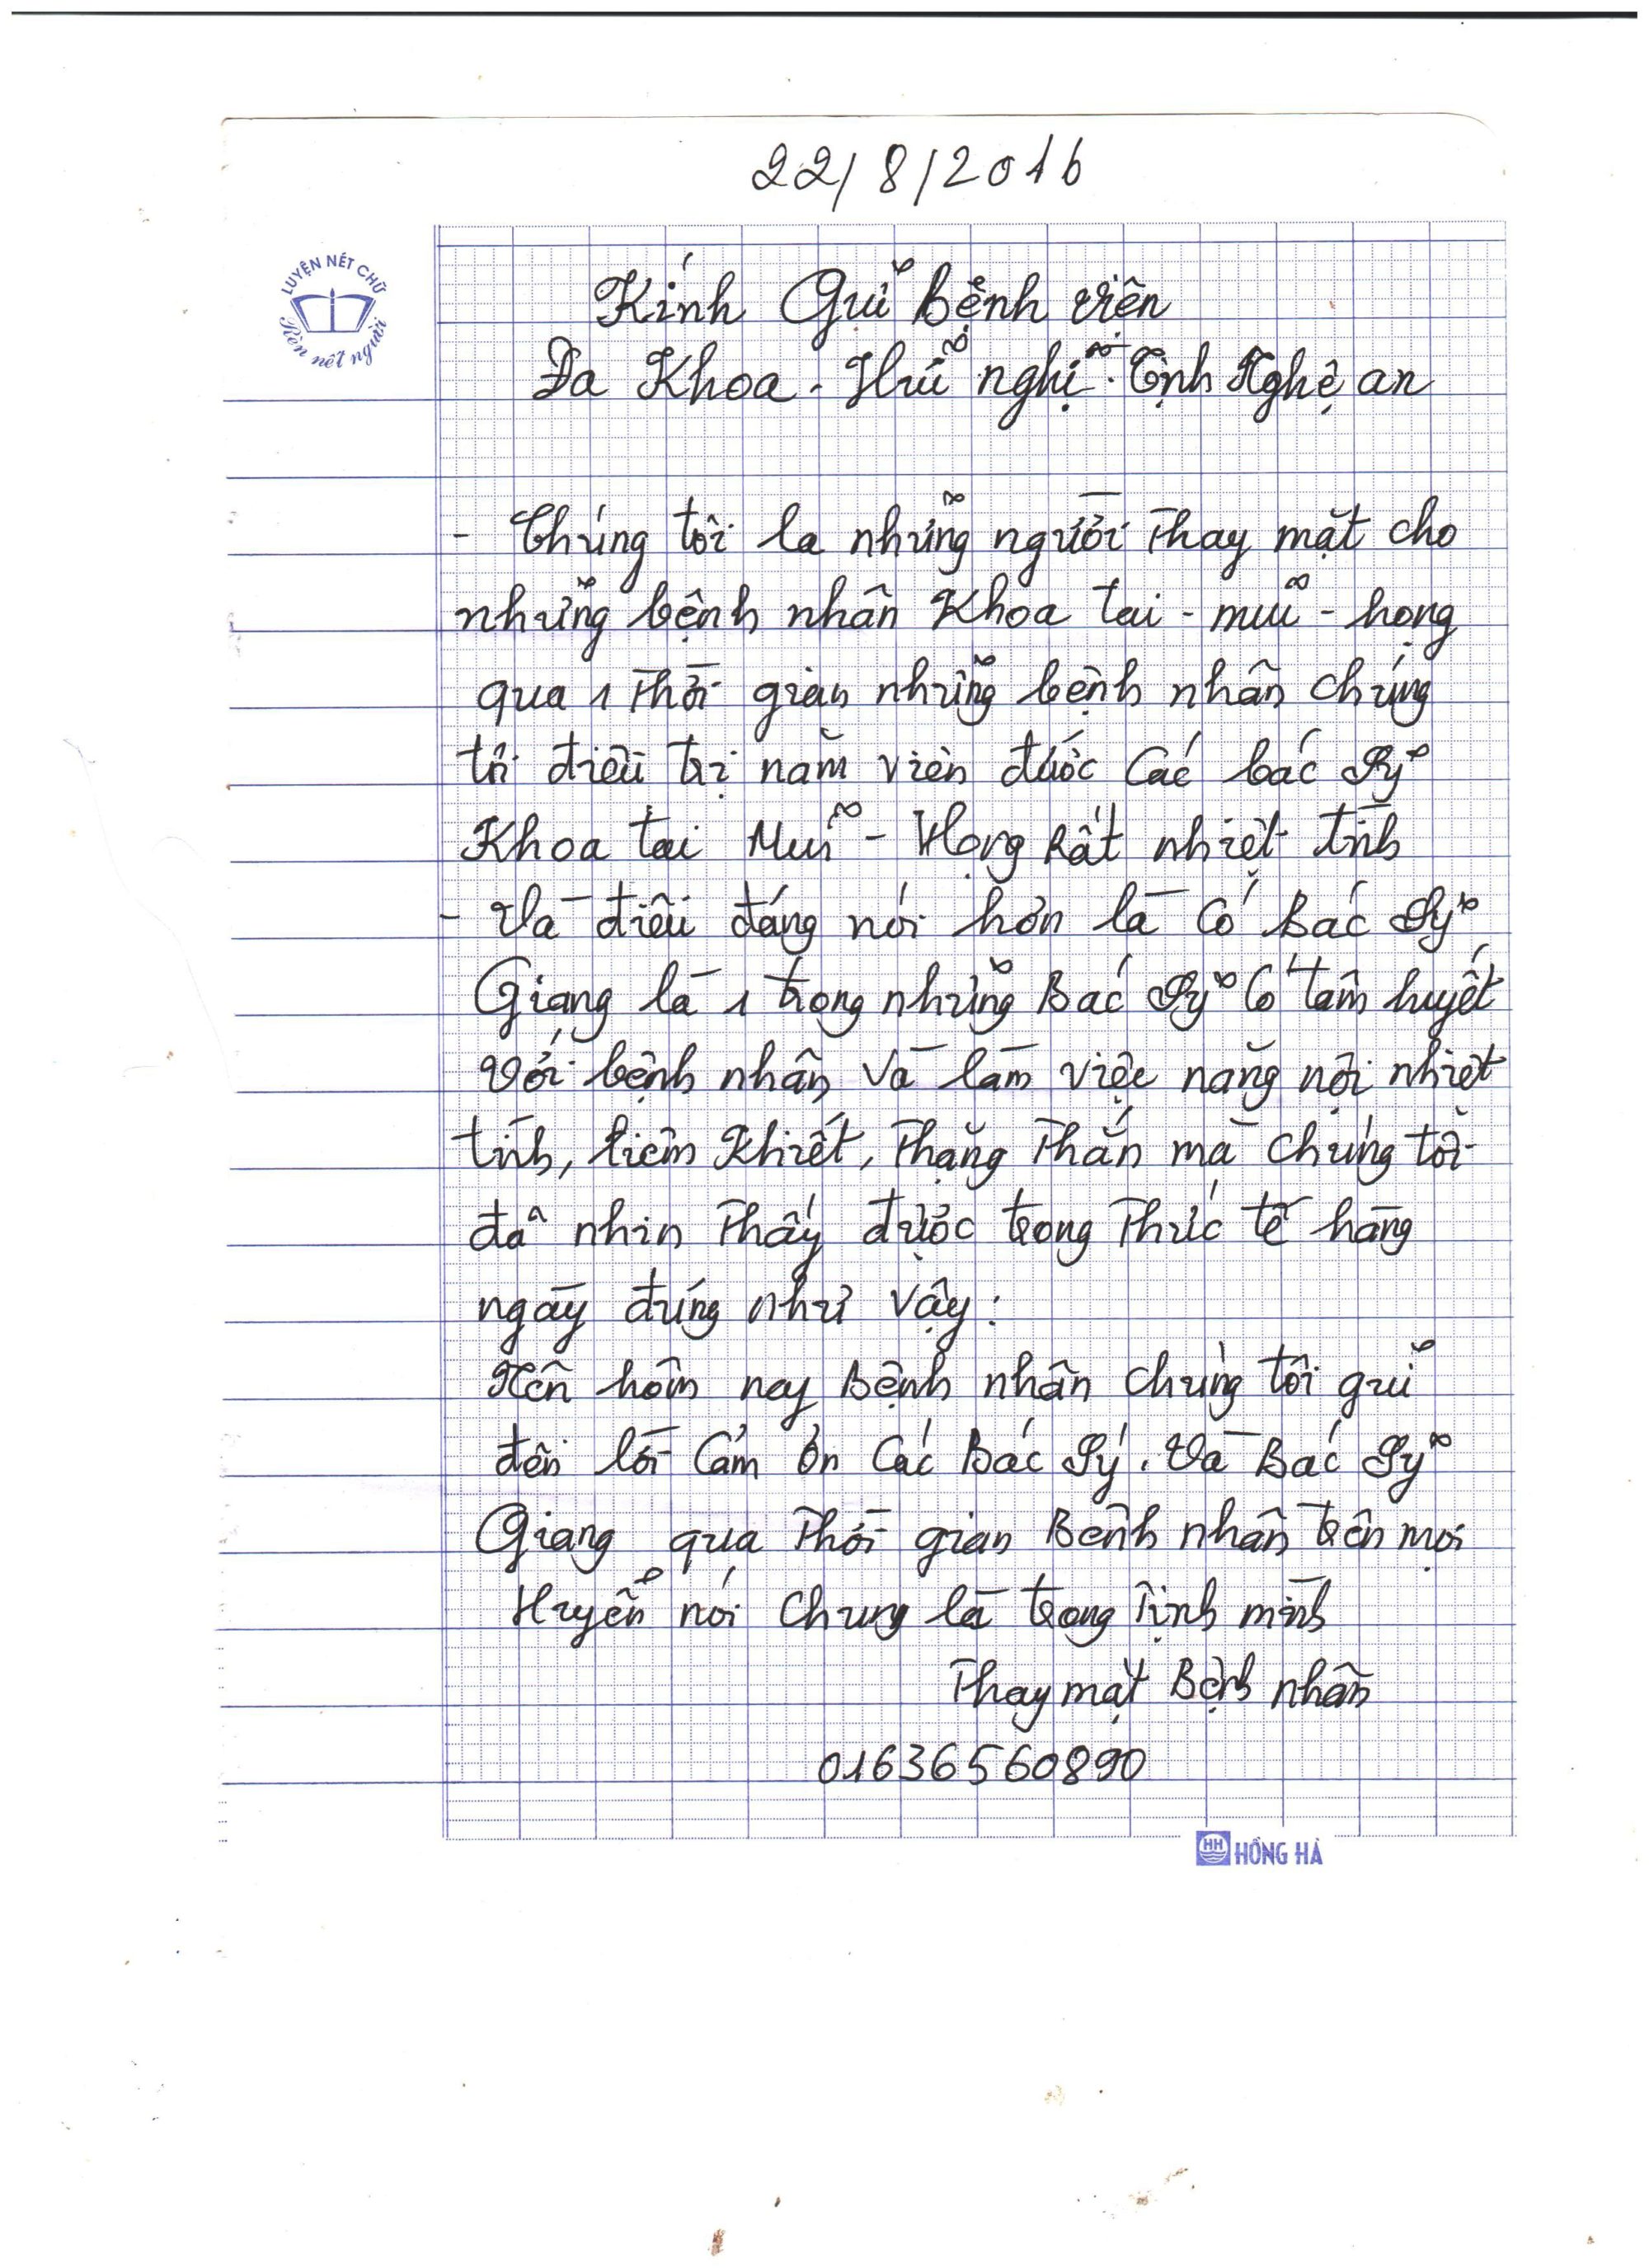 22/8/2016
LUYỆN NÉT CHỮ
Rèn nết người
Kính Gửi bệnh viện
Đa Khoa - Hữu nghị. Tỉnh Nghệ an
- Chúng tôi la những người Thay mặt cho
những bệnh nhân Khoa tai - mũi - họng
qua 1 Thời gian những bệnh nhân chúng
tôi điều trị nằm viện được Các bác sỹ
Khoa tai Mũi - Họng Rất nhiệt tình
- Và điều đáng nói hơn là Có Bác sỹ
Giang là 1 trong những Bác sỹ Có tâm huyết
Với bệnh nhân Và làm việc năng nội nhiệt
tình, liêm Khiết, Thẳng Thắn mà chúng tôi
đã nhìn Thấy được trong Thức tế hàng
ngày đúng như vậy:
Nên hôm nay Bệnh nhân chúng tôi gửi
đến lời Cảm ơn Các Bác Sý. Và Bác Sỹ
Giang qua Thời gian Bệnh nhân trên mọi
Huyễn nói Chung là trong Tỉnh mình
Thay mặt Bệnh nhân
01636560890
HH HỒNG HÀ